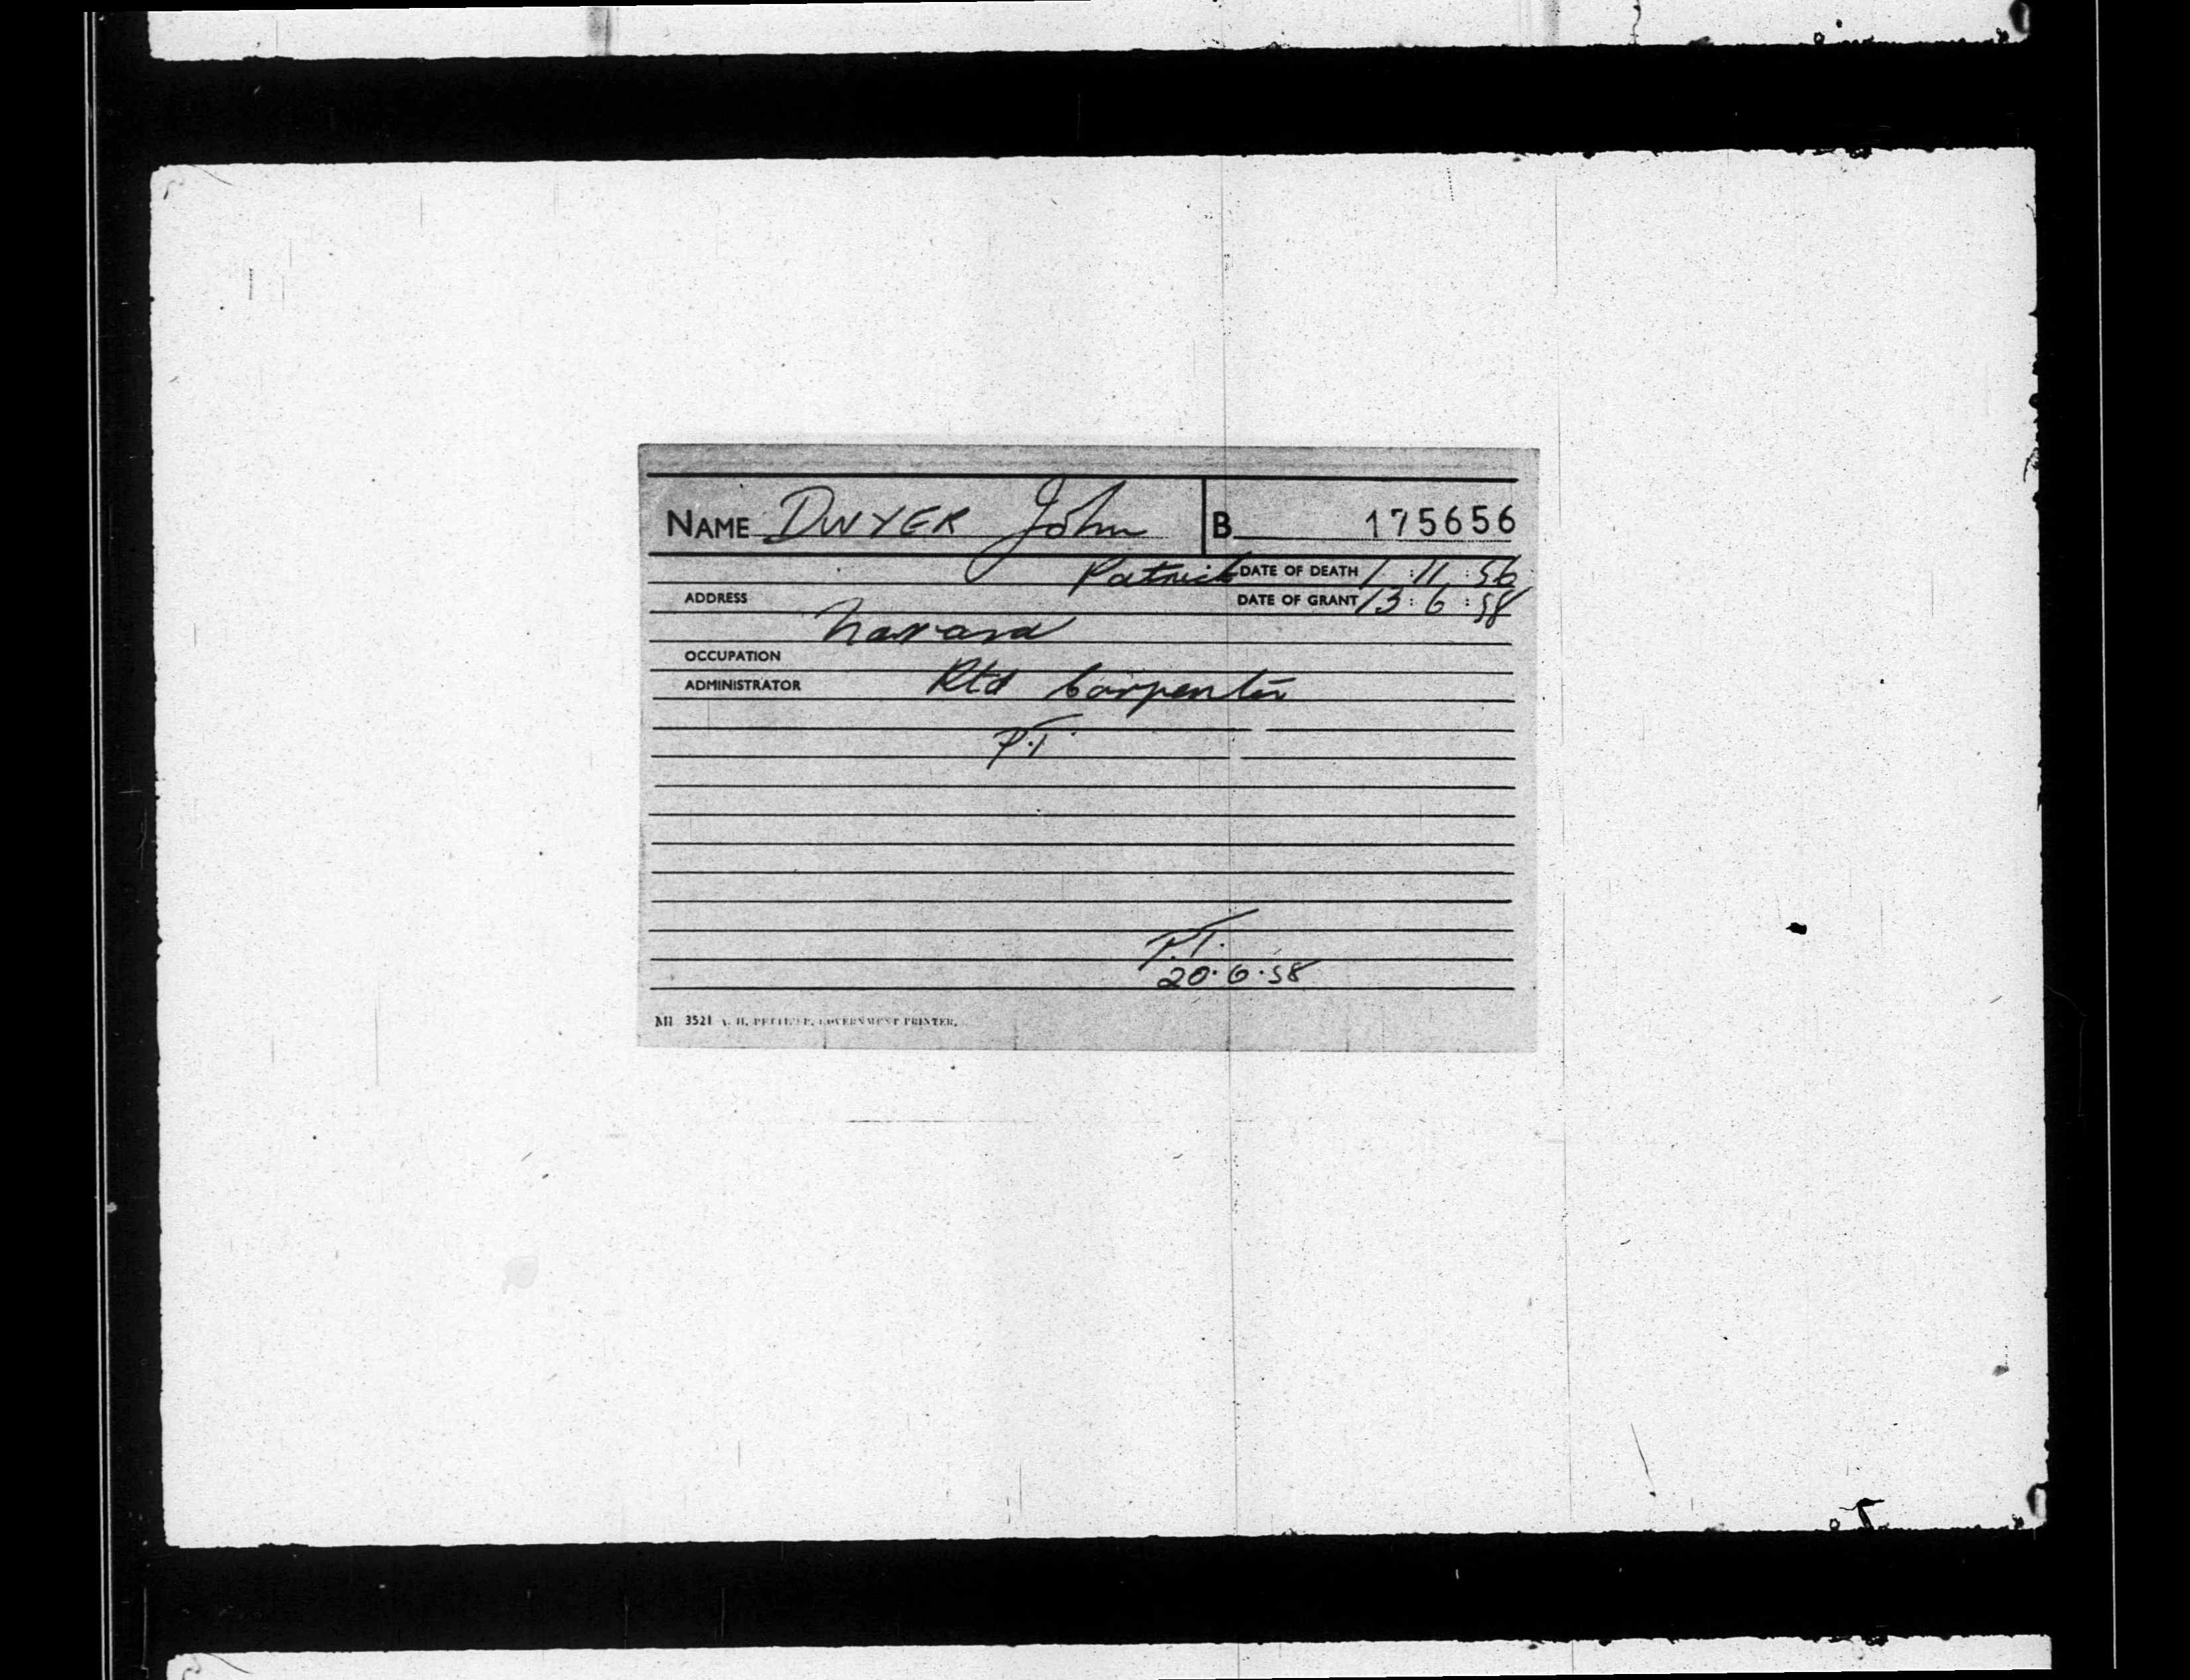 NAME DWYER John B 175656
Patrick DATE OF DEATH 1 : 11 : 56
ADDRESS DATE OF GRANT 13 : 6 : 58
OCCUPATION
ADMINISTRATOR Rtd Carpenter
P.T.
P.T.
20.6.58
3521 GOVERNMENT PRINTER.